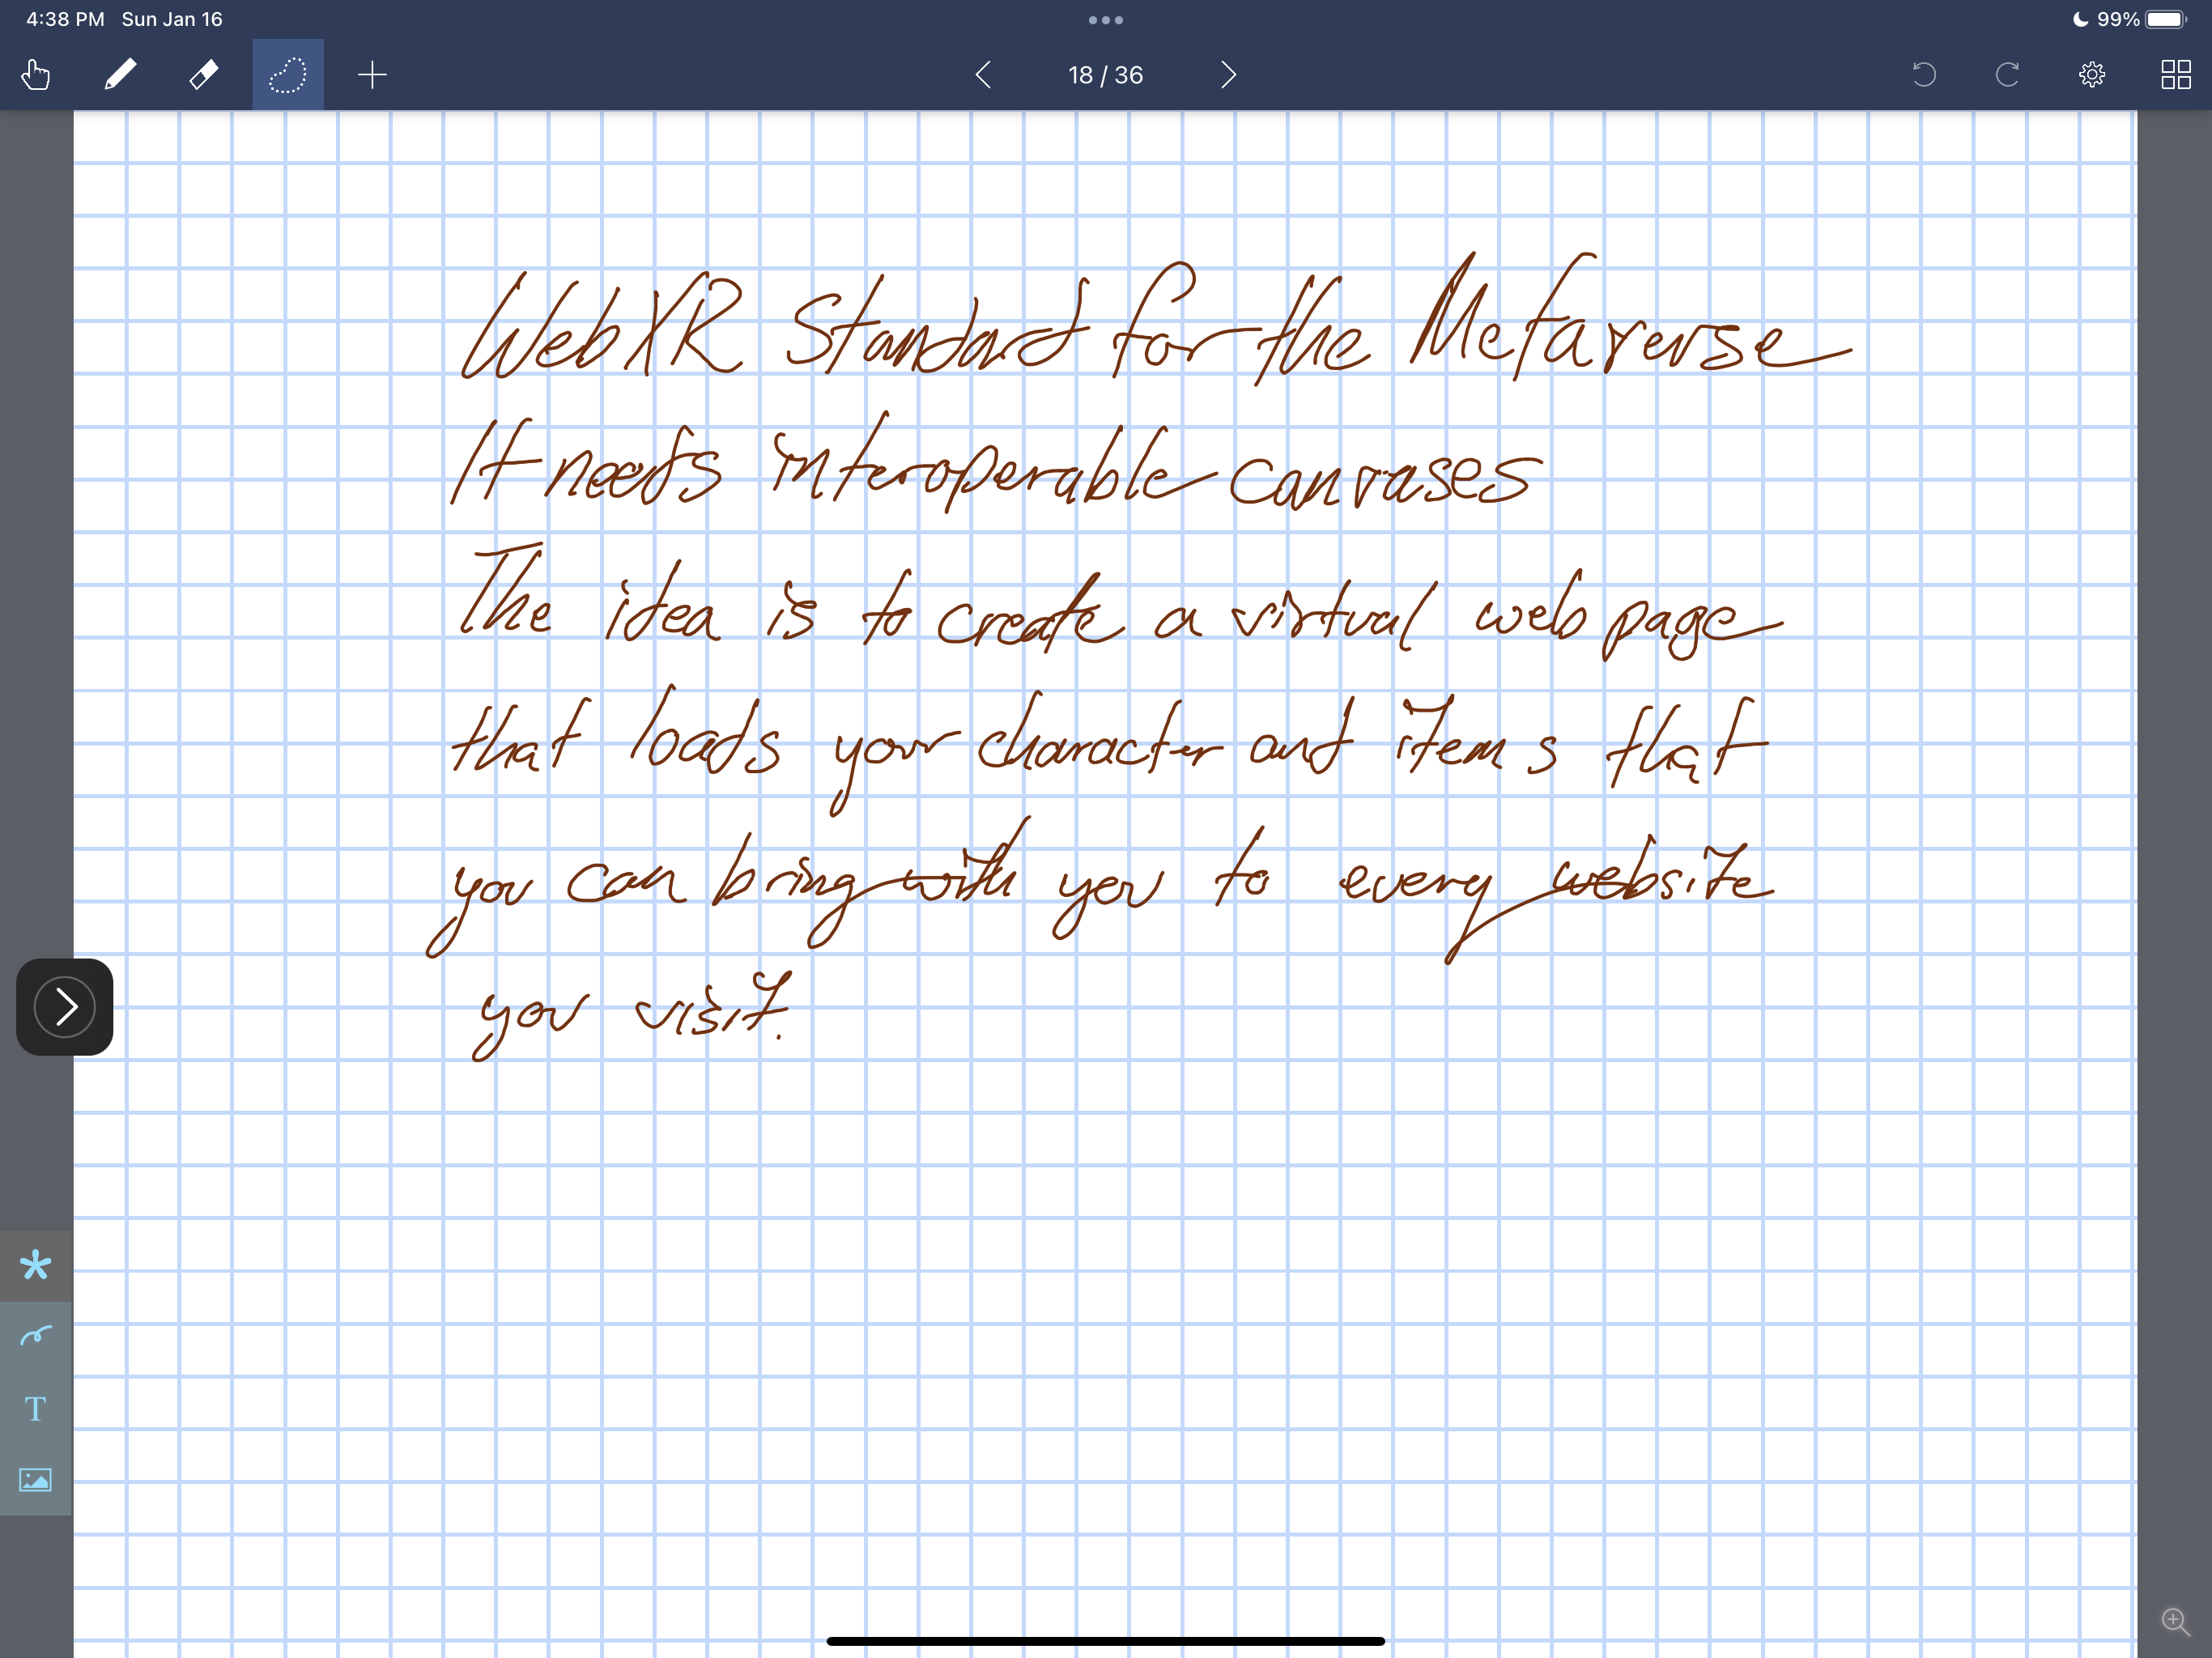 4:38 PM Sun Jan 16
99%
18 / 36
WebXR Standard for the Metaverse
It needs interoperable canvases
The idea is to create a virtual web page
that loads your character and items that
you can bring with you to every website
you visit.
T